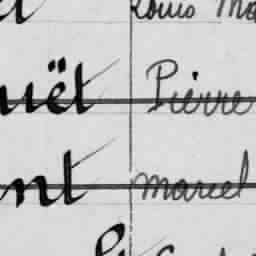 Louis Ma
uët Pierre
nt Marcel